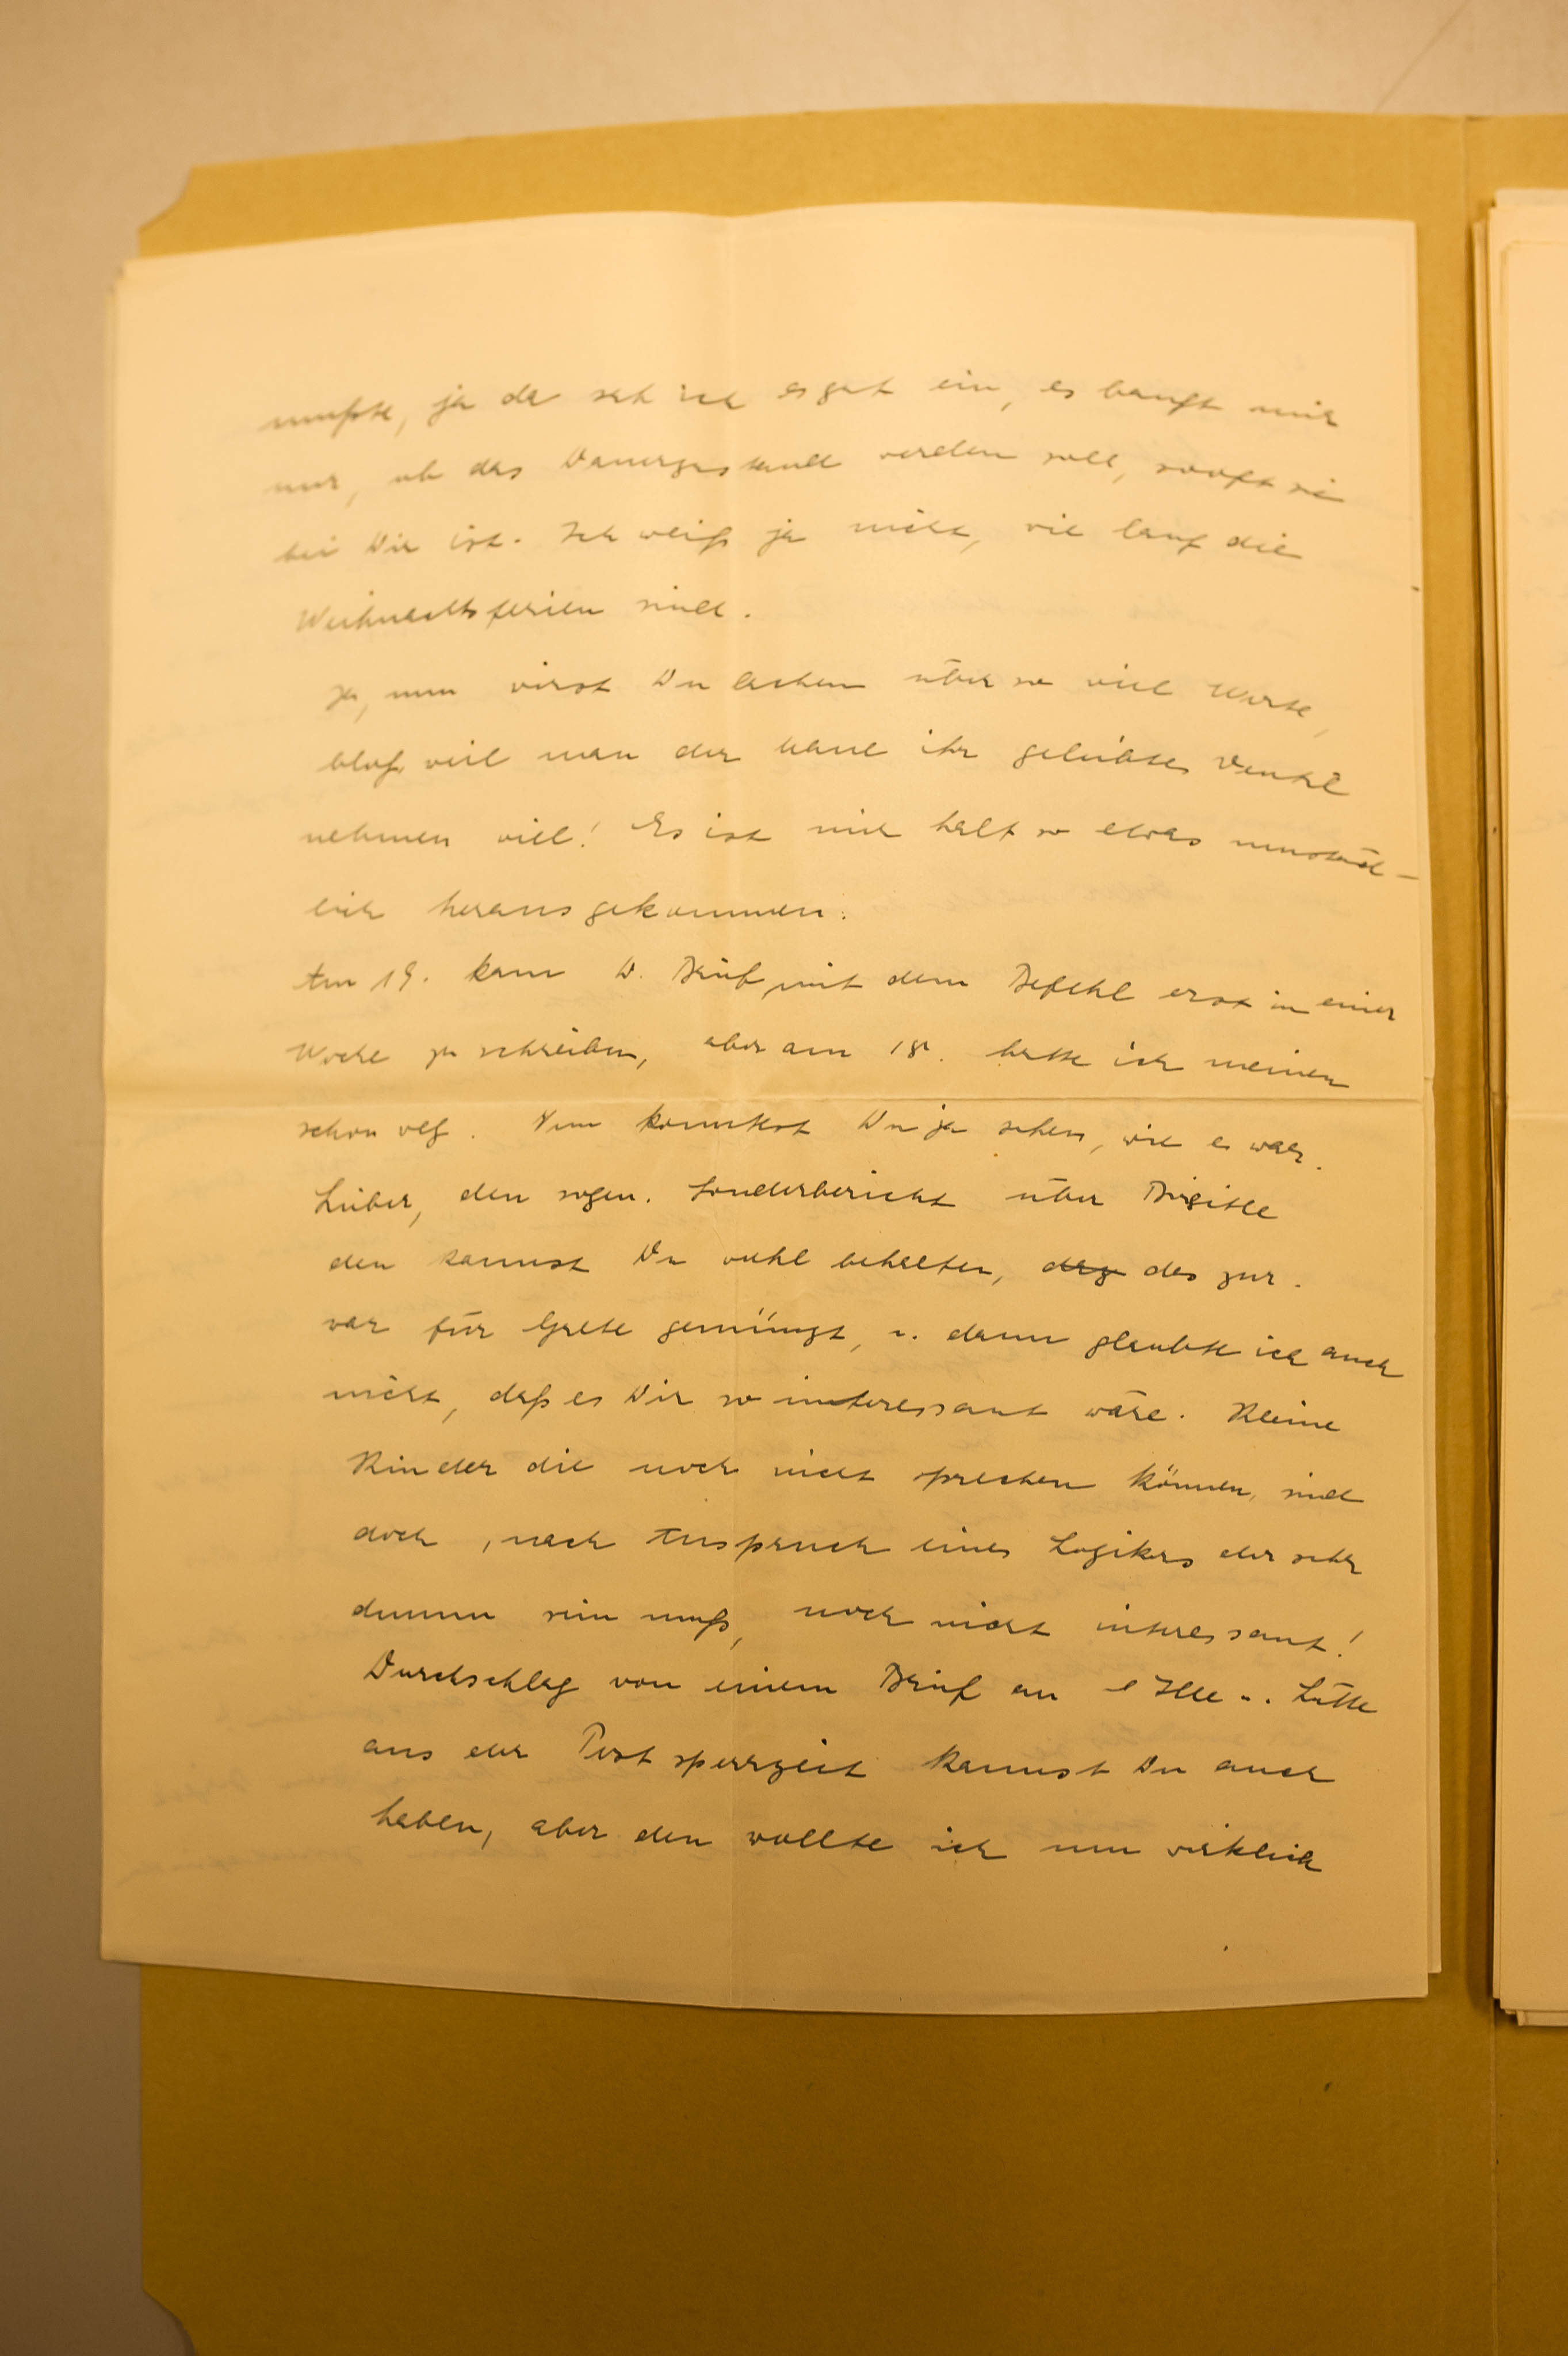 mußte, ja da seh ich es gut ein, es bangt mir
nur, ob das Dauerzustand werden soll, sooft sie
bei Dir ist. Ich weiß ja nicht, wie lang die
Weihnachtsferien sind.
Ja, nun wirst Du lachen über so viel Worte,
bloß weil man der ihr geliebtes Ventil
nehmen will! Es ist mir halt so etwas umständ-
lich herausgekommen.
Am 19. kam D. Brief, mit dem Befehl erst in einer
Woche zu schreiben, aber am 18. hatte ich meinen
schon weg. Nun konntest Du ja sehen, wie es war.
Lieber, den sogen. Sonderbericht über Brigitte
den kannst Du wohl behalten, das
war für Grete gemünzt, u. dann glaubte ich auch
nicht, daß es Dir so interessant wäre. Kleine
Kinder die noch nicht sprechen können, sind
doch, nach Ausspruch eines Logikers der sehr
dumm sein muß, noch nicht interessant!
Durchschlag von einem Brief an Ille u. Lütte
aus der Postsperrzeit kannst Du auch
haben, aber den wollte ich nun wirklich